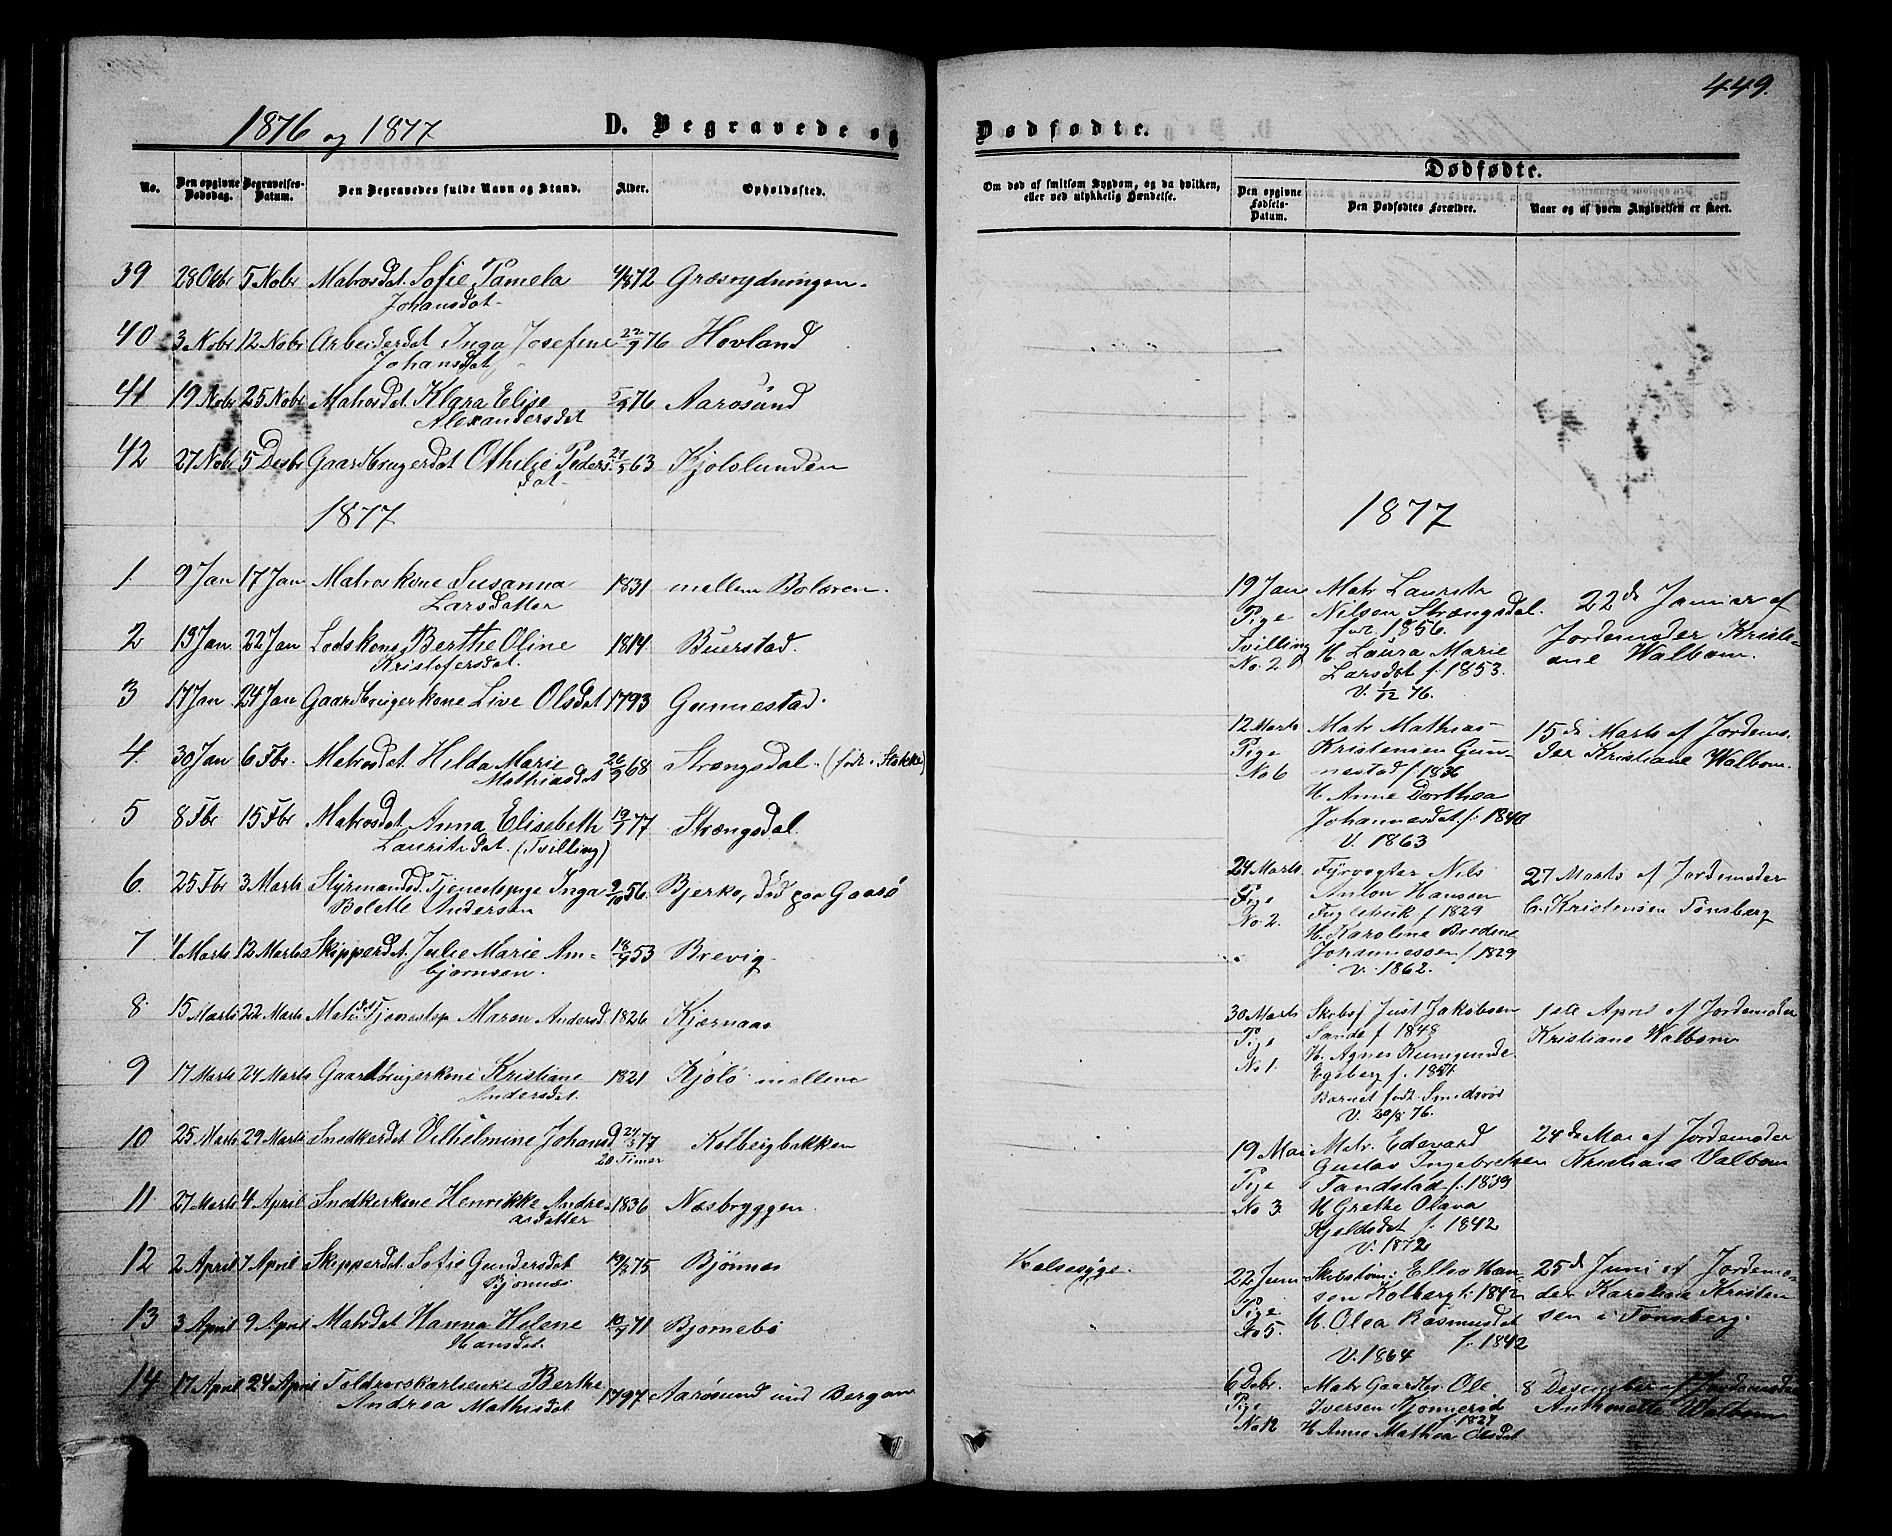 449.
1876 og 1877
D. Begravede og
Dødfødte.
No.
Den opgivne Dødsdag.
Begravelses-Datum.
Den Begravedes fulde Navn og Stand.
Alder.
Opholdssted.
Om død af smitsom Sygdom, og da hvilken, eller ved ulykkelig Hændelse.
Dødfødte.
Den opgivne Fødsels-Datum.
Den Dødfødtes Forældre.
Naar og af hvem Angivelsen er skeet.
39 28 Oktbr 5 Nobr Matrosdat. Sofie Pamela 4/8 72 Græsrydningen.
Johansdat
40 3 Nobr 12 Nobr Arbeiderdat Inga Josefine 22/9 76 Hovland
Johansdat
41 19 Nobr 25 Nobr Matrosdat. Klara Elise 5/9 76 Aarosund
Alexandersdat
42 27 Nobr 5 Desbr Gaardbrugerdat Othilie Peders 27/5 63 Kjolslunden
dat
1877
1 9 Jan 17 Jan Matroskone Susanna 1831 mellem Bolæren.
Larsdatter
2 13 Jan 22 Jan Lodskone Berthe Oline 1814 Buerstad.
Kristofersdat.
3 17 Jan 24 Jan Gaardbrugerkone Live Olsdat 1793 Gunnestad.
4. 30 Jan 6 Fbr. Matrosdat. Helda Marie 26/9 68 Strængsdal. (født i Stokke)
Mathiasdat
5 8 Fbr 15 Fbr Matrosdat. Anna Elisebeth 19/1 77 Strængsdal.
Lauritzdat. (Tvilling)
6. 25 Fbr 3 Marts Styrmandsd. Tjenestepige Inga 9/10 56. Bjerkø, død paa Gaasø
Bolette Andersen
7 4 Marts 12 Marts Skipperdat. Julie Marie Am- 18/9 53 Brevig.
bjørnsen.
8 15 Marts 22 Marts Tjenestep Maren Andersd. 1826 Kjærnaas
9 17 Marts 24 Marts Gaardbrugerkone Kristiane 1821 Kjølø mellem
Andersdat.
10 25 Marts 29 Marts Snedkerdat Vilhelmine Johansd 24/3 77 Kolbergbakken
20 Timer
11. 27 Marts 4 April Snedkerkone Henrikke Andre- 1836 Næsbryggen.
asdatter
12 2 April 7 April Skipperdat. Sofie Gundersdat 75 Bjønnes Halsesyge.
Bjønnes
13 3 April 9 April Matrdat Hanna Helene 10/9 71 Bjørnebø
Hansdat.
14 17 April 24 April Toldroerskarlsenke Berthe 1797 Aarøsund und Bergan
Andrea Mathisdat.
1877
19 Jan
Pige
Tvilling
No. 2
Matr Lauritz
Nilsen Strængsdal.
født 1856.
H. Laura Marie
Larsdat f. 1853.
V. 1/12 76.
22de Januar af
Jordemoder Kristi-
ane Walbom.
12 Marts
Pige
No 6
Matr Mathias
Kristensen Gun-
nestad f 1836
H. Anne Dorthea
Johannesdat f. 1840
V. 1863
15de Marts af Jordemo-
der Kristiane Walbom.
24 Marts
Pige
No 2.
Fyrvogter Nils
Anton Hansen
Fuglehuk f 1829
H. Karoline Bredine
Johannessen f 1829
V. 1862.
27 Marts af Jordemoder
C. Kristensen Tønsberg
30 Marts
Pige
No 1.
Skbsf Just Jakobsen
Sande f. 1848
H. Agnes Kunigunde
Egeberg f. 1851
Barnet født Smidsrød
V. 20/8 76.
1ste April af Jordemoder
Kristiane Walbom
19 Mai
Pige
No 3.
Matr. Edevard
Gustav Ingebretsen
Tandstad f. 1839
H Grethe Olava
Kjeldsdat f. 1842
V. 1872
24de Mai af Jordemoder
Kristiane Valbom
22 Juni
Pige
No 5.
Skibstøm: Ellev Han-
sen Kolberg f. 1842
H. Olea Rasmusdat
f. 1842
V. 1864
25de Juni af Jordemo-
der Karoline Kristen
sen i Tønsberg.
6 Dcbr.
Pige
No 12
Matr Gaardbr Ole
Iversen Njønnerød
f 1827
H Anne Mathea Olsdat
8 December af Jordemoder
Anthonette Walbom